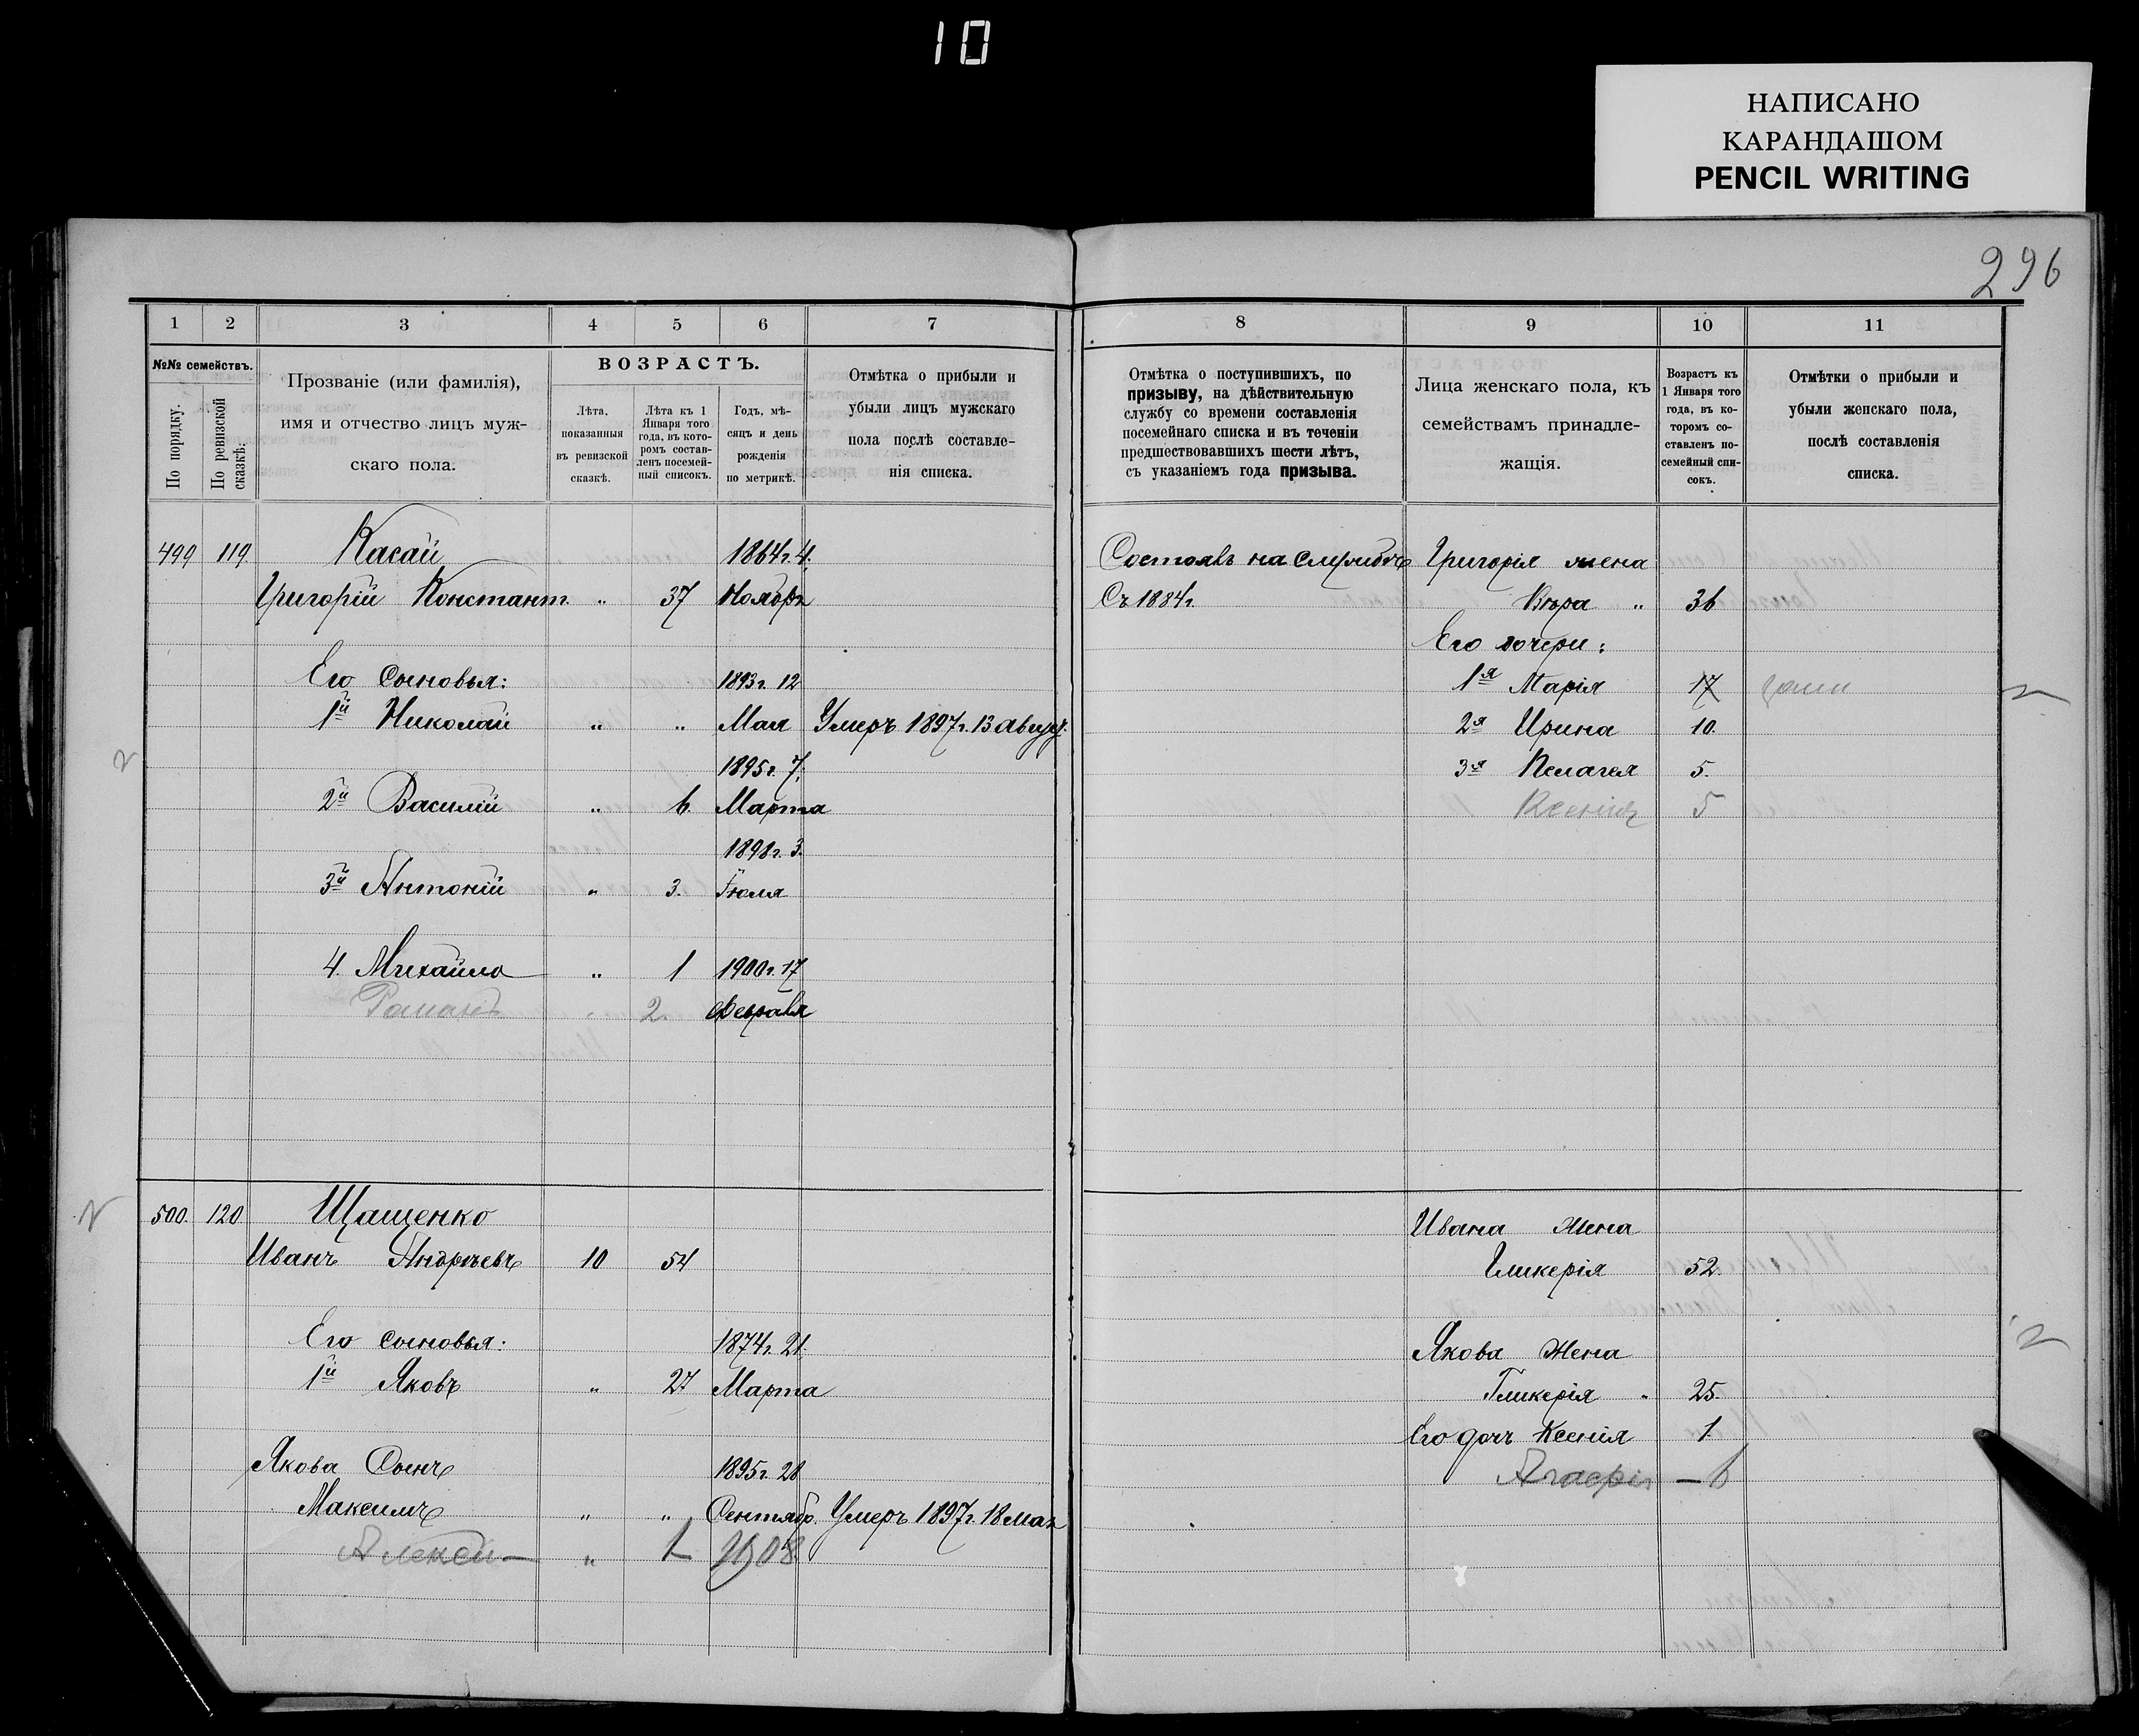 10
НАПИСАНО
КАРАНДАШОМ
PENCIL WRITING
296
1 2 3 4 5 6 7
№№ семействъ.
По порядку.
По ревизской сказкѣ.
Прозваніе (или фамилія),
имя и отчество лицъ муж-
скаго пола.
ВОЗРАСТЪ.
Лѣта,
показанныя
въ ревизской
сказкѣ.
Лѣта къ 1
Января того
года, въ кото-
ромъ состав-
ленъ посемей-
ный списокъ.
Годъ, мѣ-
сяцъ и день
рожденія
по метрикѣ.
Отмѣтка о прибыли и
убыли лицъ мужскаго
пола послѣ составле-
нія списка.
499 119 Касай 1864г. 4.
Григорій Констант. „ 37 Ноября
Его Сыновья: 1893г. 12
1й Николай „ „ Мая Умеръ 1897г. 13 Авгус.
1895г. 7.
2й Василій „ 6. Марта
1898г. 3.
3й Антоній „ 3. Іюля
4. Михайло „ 1 1900г. 17
Романъ „ 2 Февраля
500. 120 Щащенко
Иванъ Андреевъ 10 54
Его сыновья: 1874г. 21.
1й Яковъ „ 27 Марта
Якова Сынъ 1895г. 28
Максимъ „ „ Сентябр. Умеръ 1897г. 18 Мая
Алексей — „ 1 1908
8 9 10 11
Отмѣтка о поступившихъ, по
призыву, на дѣйствительную
службу со времени составленія
посемейнаго списка и въ теченіи
предшествовавшихъ шести лѣтъ,
съ указаніемъ года призыва.
Лица женскаго пола, къ
семействамъ принадле-
жащія.
Возрастъ къ
1 Января того
года, въ ко-
торомъ со-
ставленъ по-
семейный спи-
сокъ.
Отмѣтки о прибыли и
убыли женскаго пола,
послѣ составленія
списка.
Состоявъ на службѣ Григорія жена
Съ 1884г. Вѣра „ 36
Его дочери:
1я Марія 17
2я Ирина 10.
3я Пелагея 5.
Ксенія 5
Ивана Жена
Гликерія 52.
Якова Жена
Гликерія „ 25.
Его дочь Ксенія 1.
Агафія — 6